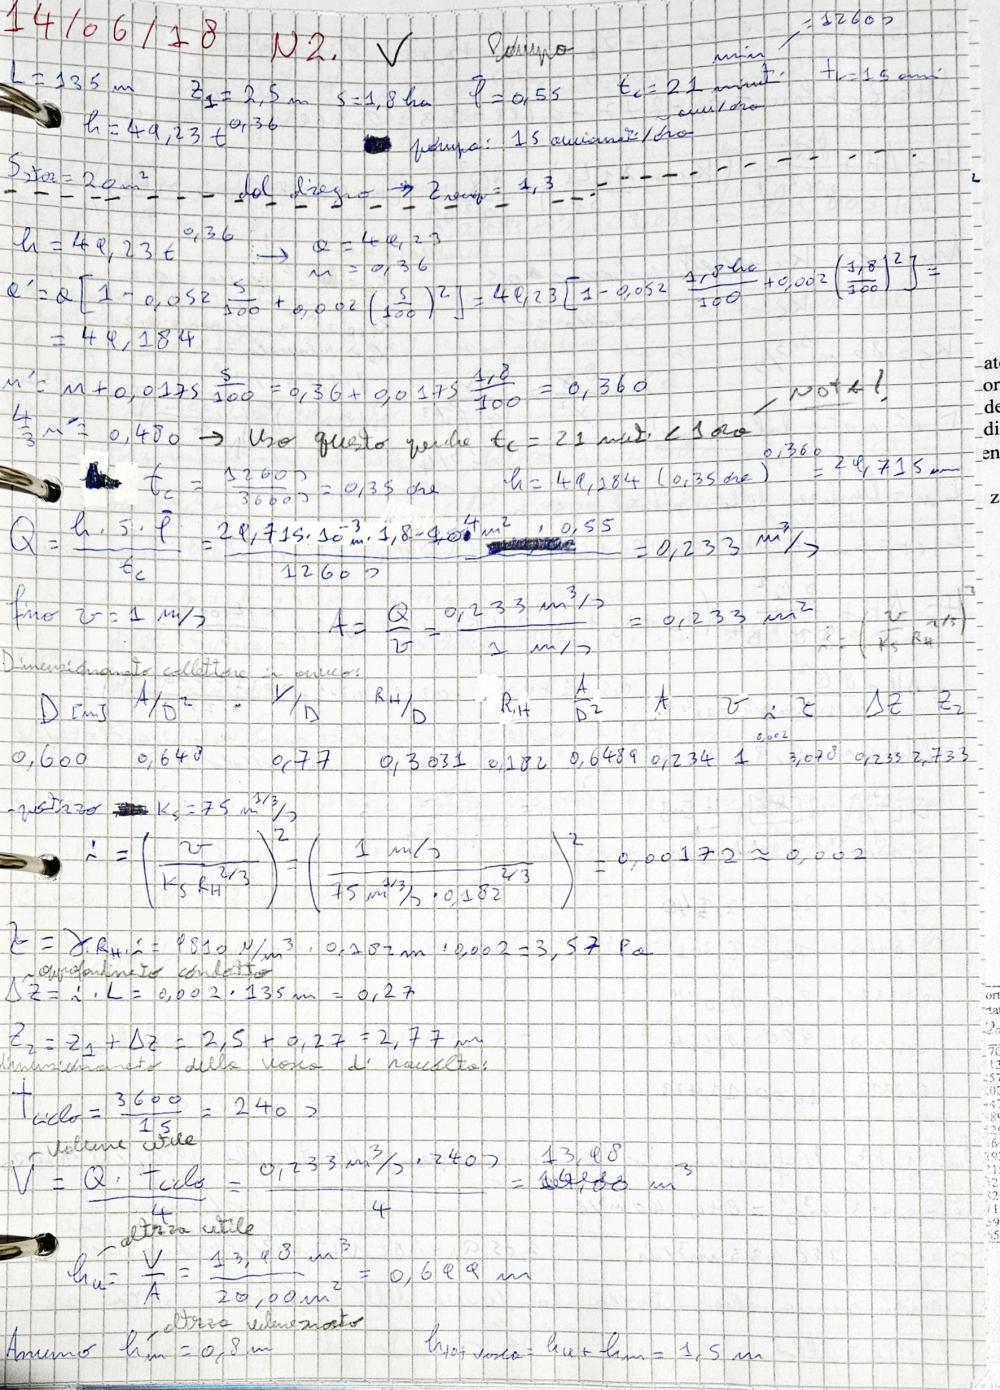 14/06/18 N2. V Pompa = 1260 s
L = 135 m z₁ = 2,5 m s = 1,8 ha φ̄ = 0,55 t_c = 21 minuti tr = 15 anni
h = 49,23 t^0,36 pompa: 15 avviamenti/ora
S_stor = 20 m² dal disegno → z = 1,3
h = 49,23 t^0,36 → a = 49,23
n = 0,36
a' = a [1 - 0,052 s/100 + 0,002 (s/100)²] = 49,23 [1 - 0,052 1,8 ha/100 + 0,002 (1,8/100)²] =
= 49,184
n' = n + 0,0175 s/100 = 0,36 + 0,0175 1,8/100 = 0,360
NOTA!
4/3 n' = 0,480 → Uso questo perché t_c = 21 min. < 1 ora
t_c = 1260 s/3600 s = 0,35 ore h = 49,184 (0,35 ore)^0,360 = 29,715 mm
Q = h · s · φ̄ / t_c = 29,715 · 10⁻³ m · 1,8 · 10⁴ m² · 0,55 / 1260 s = 0,233 m³/s
fisso v = 1 m/s A = Q/v = 0,233 m³/s / 1 m/s = 0,233 m² i = (v / K_s R_H^2/3)²
Dimensionamento collettore in arrivo:
D [m] A/D² Y/D R_H/D R_H A/D² A v i τ ΔZ Z₂
0,600 0,648 0,77 0,3031 0,182 0,6489 0,234 1 0,002 3,078 0,233 2,733
- ipotizzo K_s = 75 m^1/3/s
i = (v / K_s R_H^2/3)² = (1 m/s / 75 m^1/3/s · 0,182^2/3)² = 0,00172 ≈ 0,002
τ = γ · R_H · i = 9810 N/m³ · 0,182 m · 0,002 = 3,57 Pa
- approfondimento condotto
ΔZ = i · L = 0,002 · 135 m = 0,27
Z₂ = z₁ + ΔZ = 2,5 + 0,27 = 2,77 m
Dimensionamento della vasca di raccolta:
T_ciclo = 3600/15 = 240 s
- volume utile
V = Q · T_ciclo / 4 = 0,233 m³/s · 240 s / 4 = 13,98 m³
- altezza utile
h_u = V/A = 13,98 m³ / 20,00 m² = 0,699 m
- altezza
Assumo h_m = 0,8 m h_tot vasca = h_u + h_m = 1,5 m